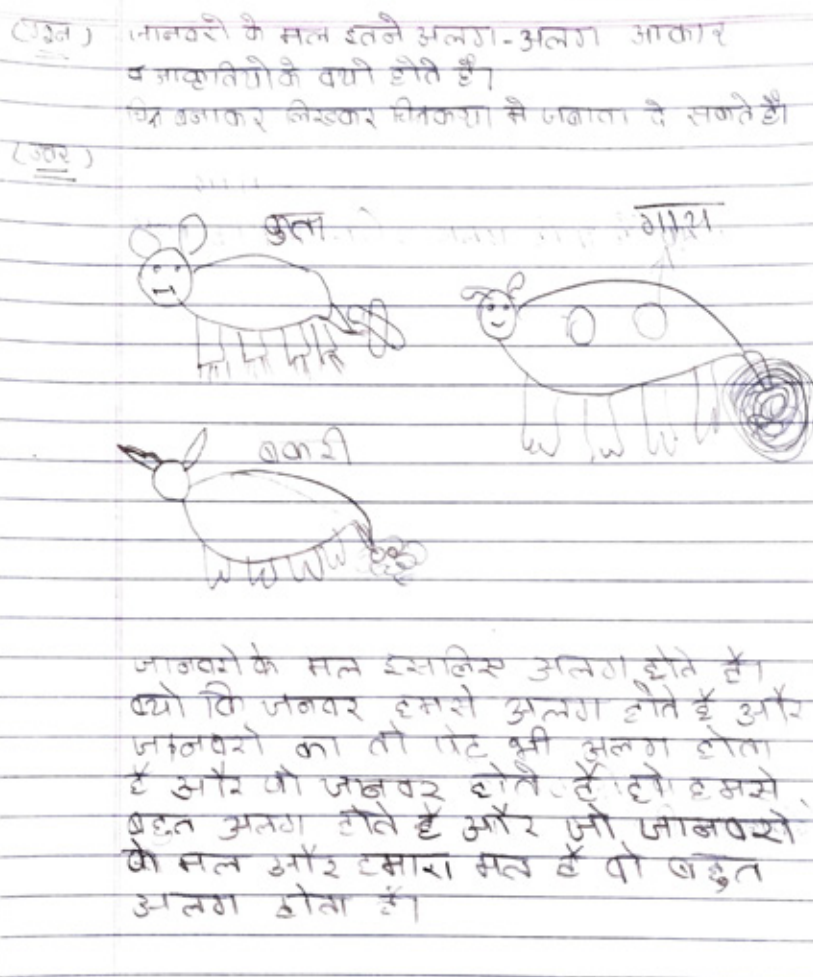 (प्रश्न) जानवरो के मल इतने अलग-अलग आकार
व आकृतियो के क्यो होते है।
चित्र बनाकर लिखकर चित्रकथा मे जवाब दे सकते है।
(उत्तर)
कुत्ता
गाय
बकरी
जानवरो के मल इसलिए अलग होते है।
क्यो कि जनवर हमसे अलग होते है और
जानवरो का तो पेट भी अलग होता
है और वो जानवर होते है हमसे
बहुत अलग होते है और जो जानवरो
के मल और हमारा मल है वो बहुत
अलग होता है।